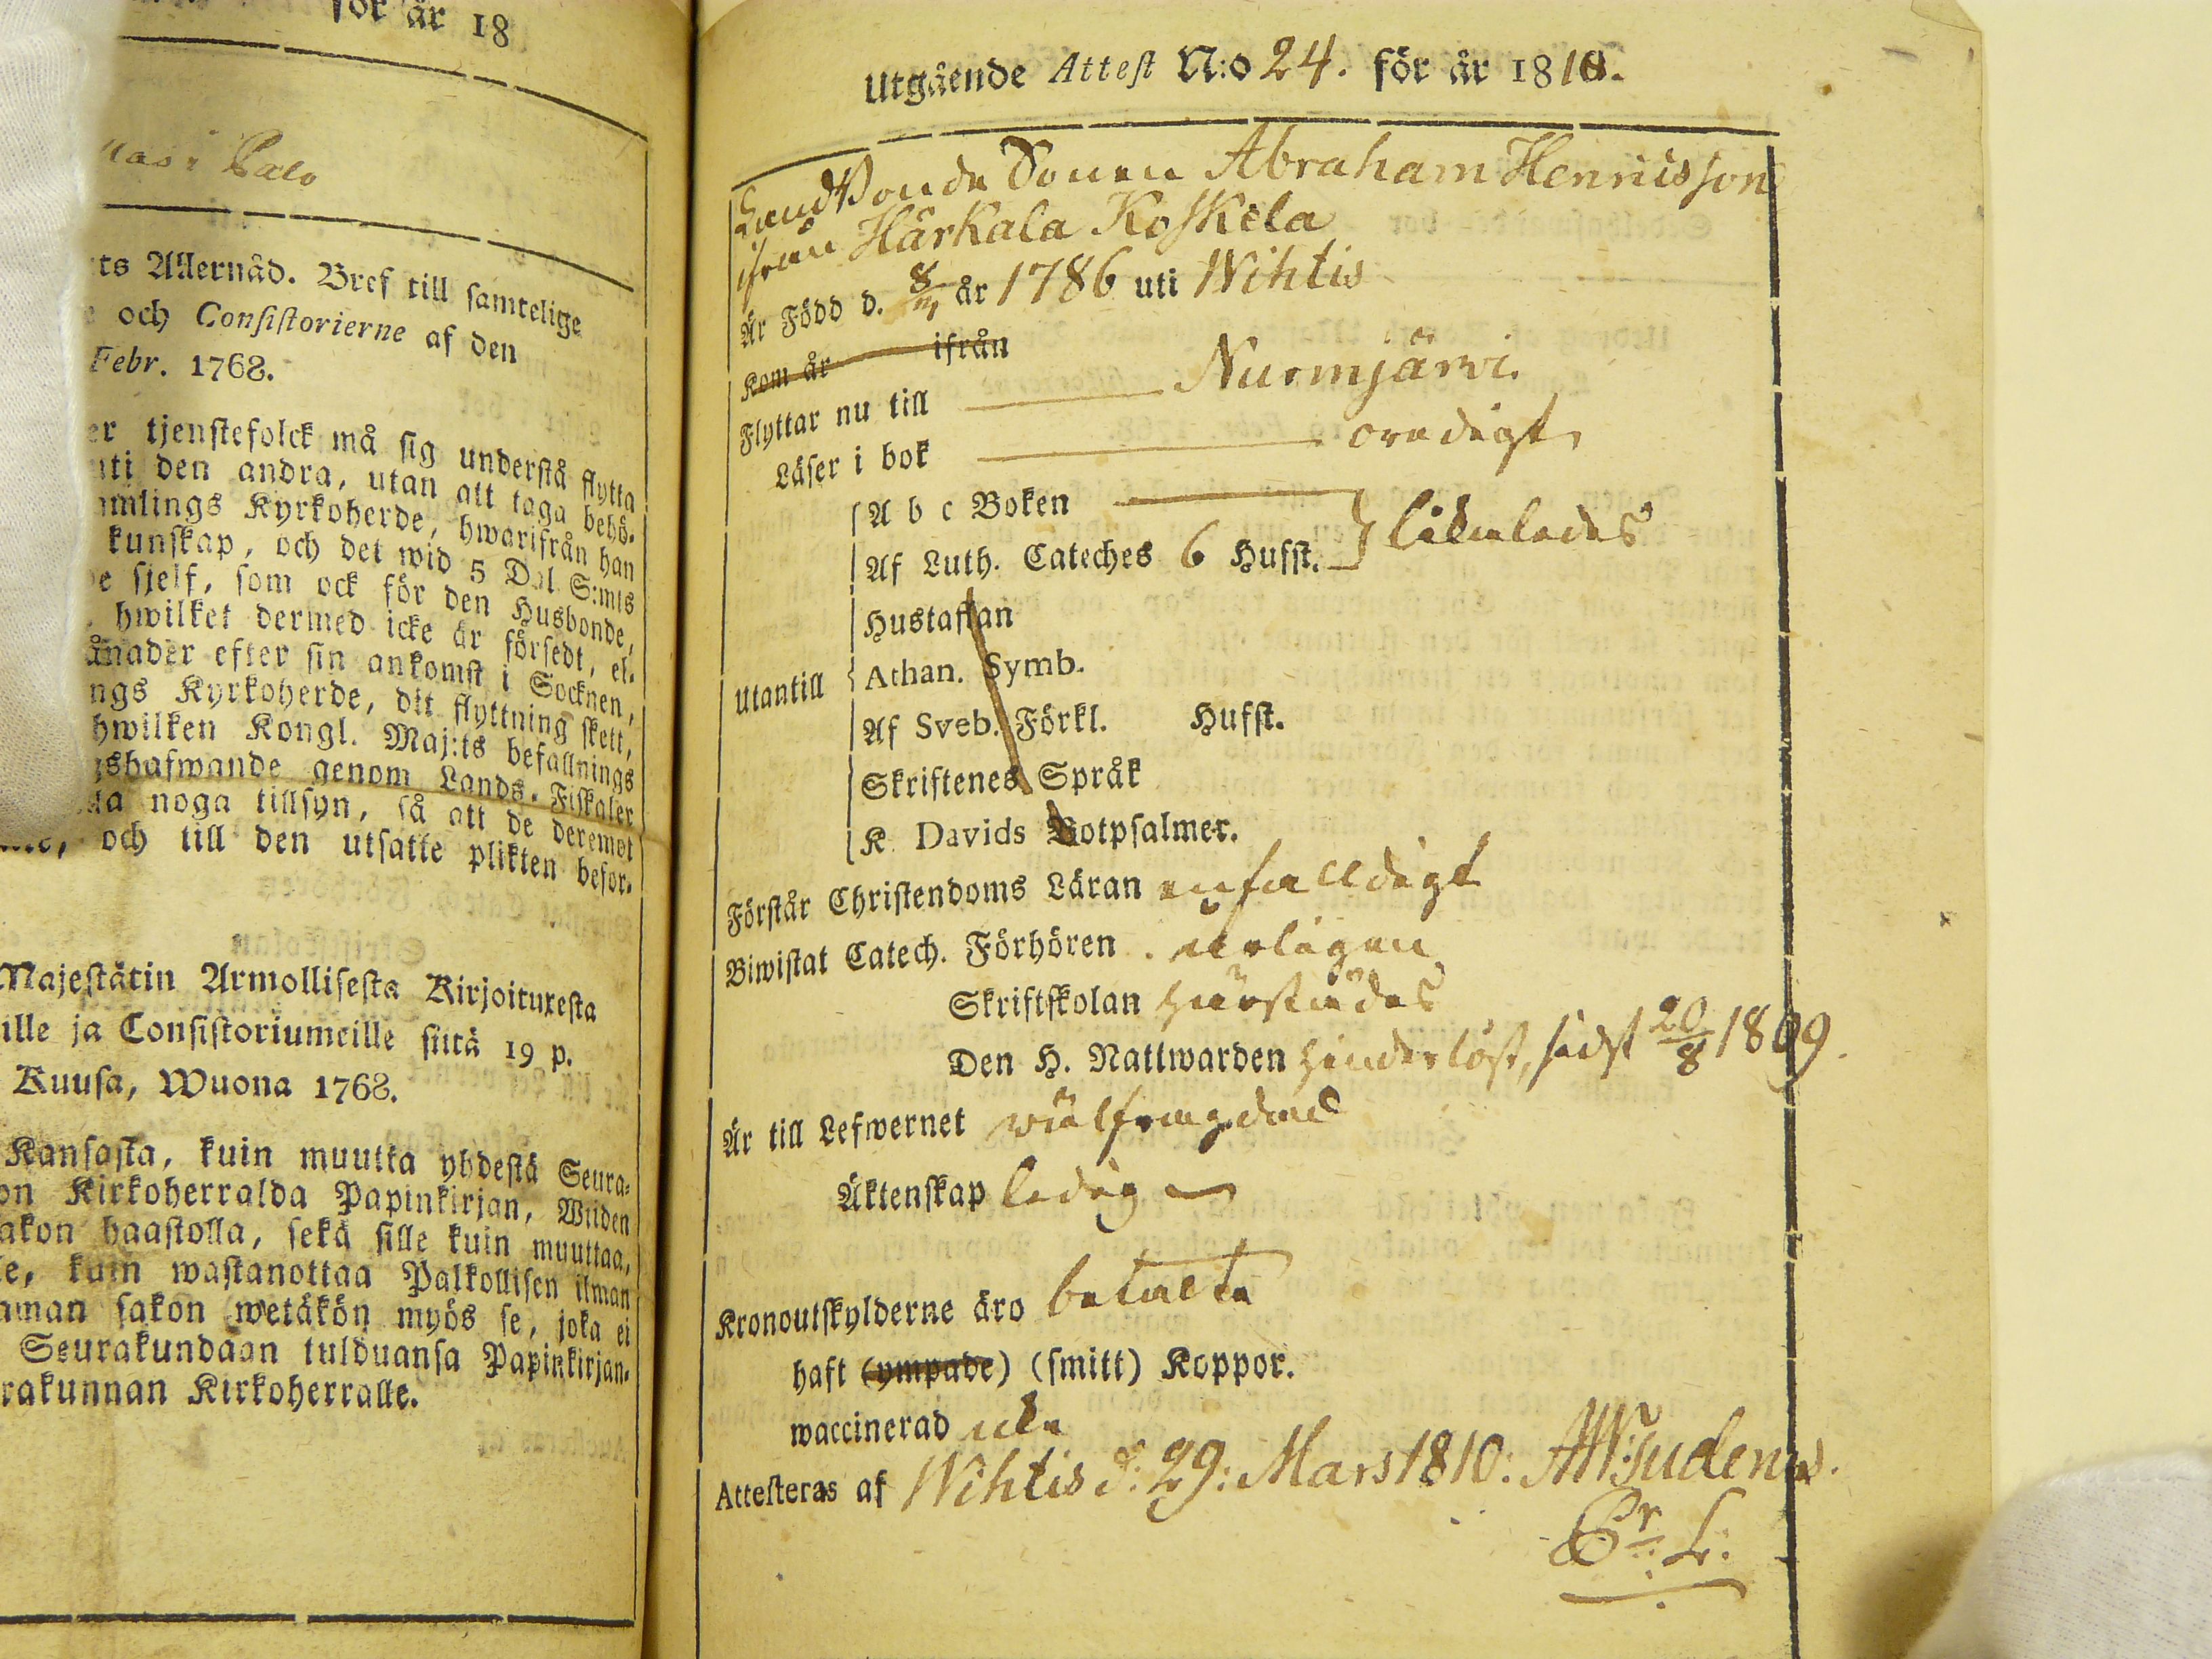 för år 18
i Palo
ts Allernåd. Bref till samtelige
och Consistorierne af den
Febr. 1768.
er tjenstefolck må sig understå flytta
uti den andra, utan att taga behö-
mlings Kyrkoherde, hwarifrån han
kunskap, och det wid 5 Dal. S:mts
sjelf, som ock för den Husbonde,
hwilket dermed icke är försedt, el-
ånader efter sin ankomst i Socknen,
ngs Kyrkoherde, dit flyttning skett,
hwilken Kongl. Maj:ts befallnings
gshafwande genom Lands-Fiskaler
noga tillsyn, så att de deremot
och till den utsatte plikten befor-
Majestätin Armollisesta Kirjoituxesta
ille ja Consistoriumeille siitä 19 p.
Kuusa, Wuona 1768.
Kansasta, kuin muutta yhdestä Seura-
on Kirkoherralda Papinkirjan, Wiiden
akon haastolla, sekä sille kuin muuttaa,
le, kuin wastanottaa Palkollisen ilman
aman sakon wetäkön myös se, joka ei
Seurakundaan tulduansa Papinkirjan-
rakunnan Kirkoherralle.
Utgående Attest N:o 24. för år 1810.
LandBonde Sonen Abraham Hennisson
ifrån Härkala Koskela
Är Född d. 8/ år 1786 uti Wihtis
Kom år ifrån
Flyttar nu till Nurmjärwi.
Läser i bok oredigt
A b c Boken
Af Luth. Cateches 6 Hufst. likaledes
Hustaflan
Utantill Athan. Symb.
Af Sveb. Förkl. Hufst.
Skriftenes Språk
K. Davids Botpsalmer.
Förstår Christendoms Läran enfalldigt
Biwistat Catech. Förhören . årligen
Skriftskolan härstädes
Den H. Nattwarden hinderlöst, sidst 20/8 1809.
Är till Lefwernet wälfrägdad
Äktenskap ledig
Kronoutskylderne äro betalte
haft (ympade) (smitt) Koppor.
waccinerad icke
Attesteras af Wihtis d: 29: Mars 1810: